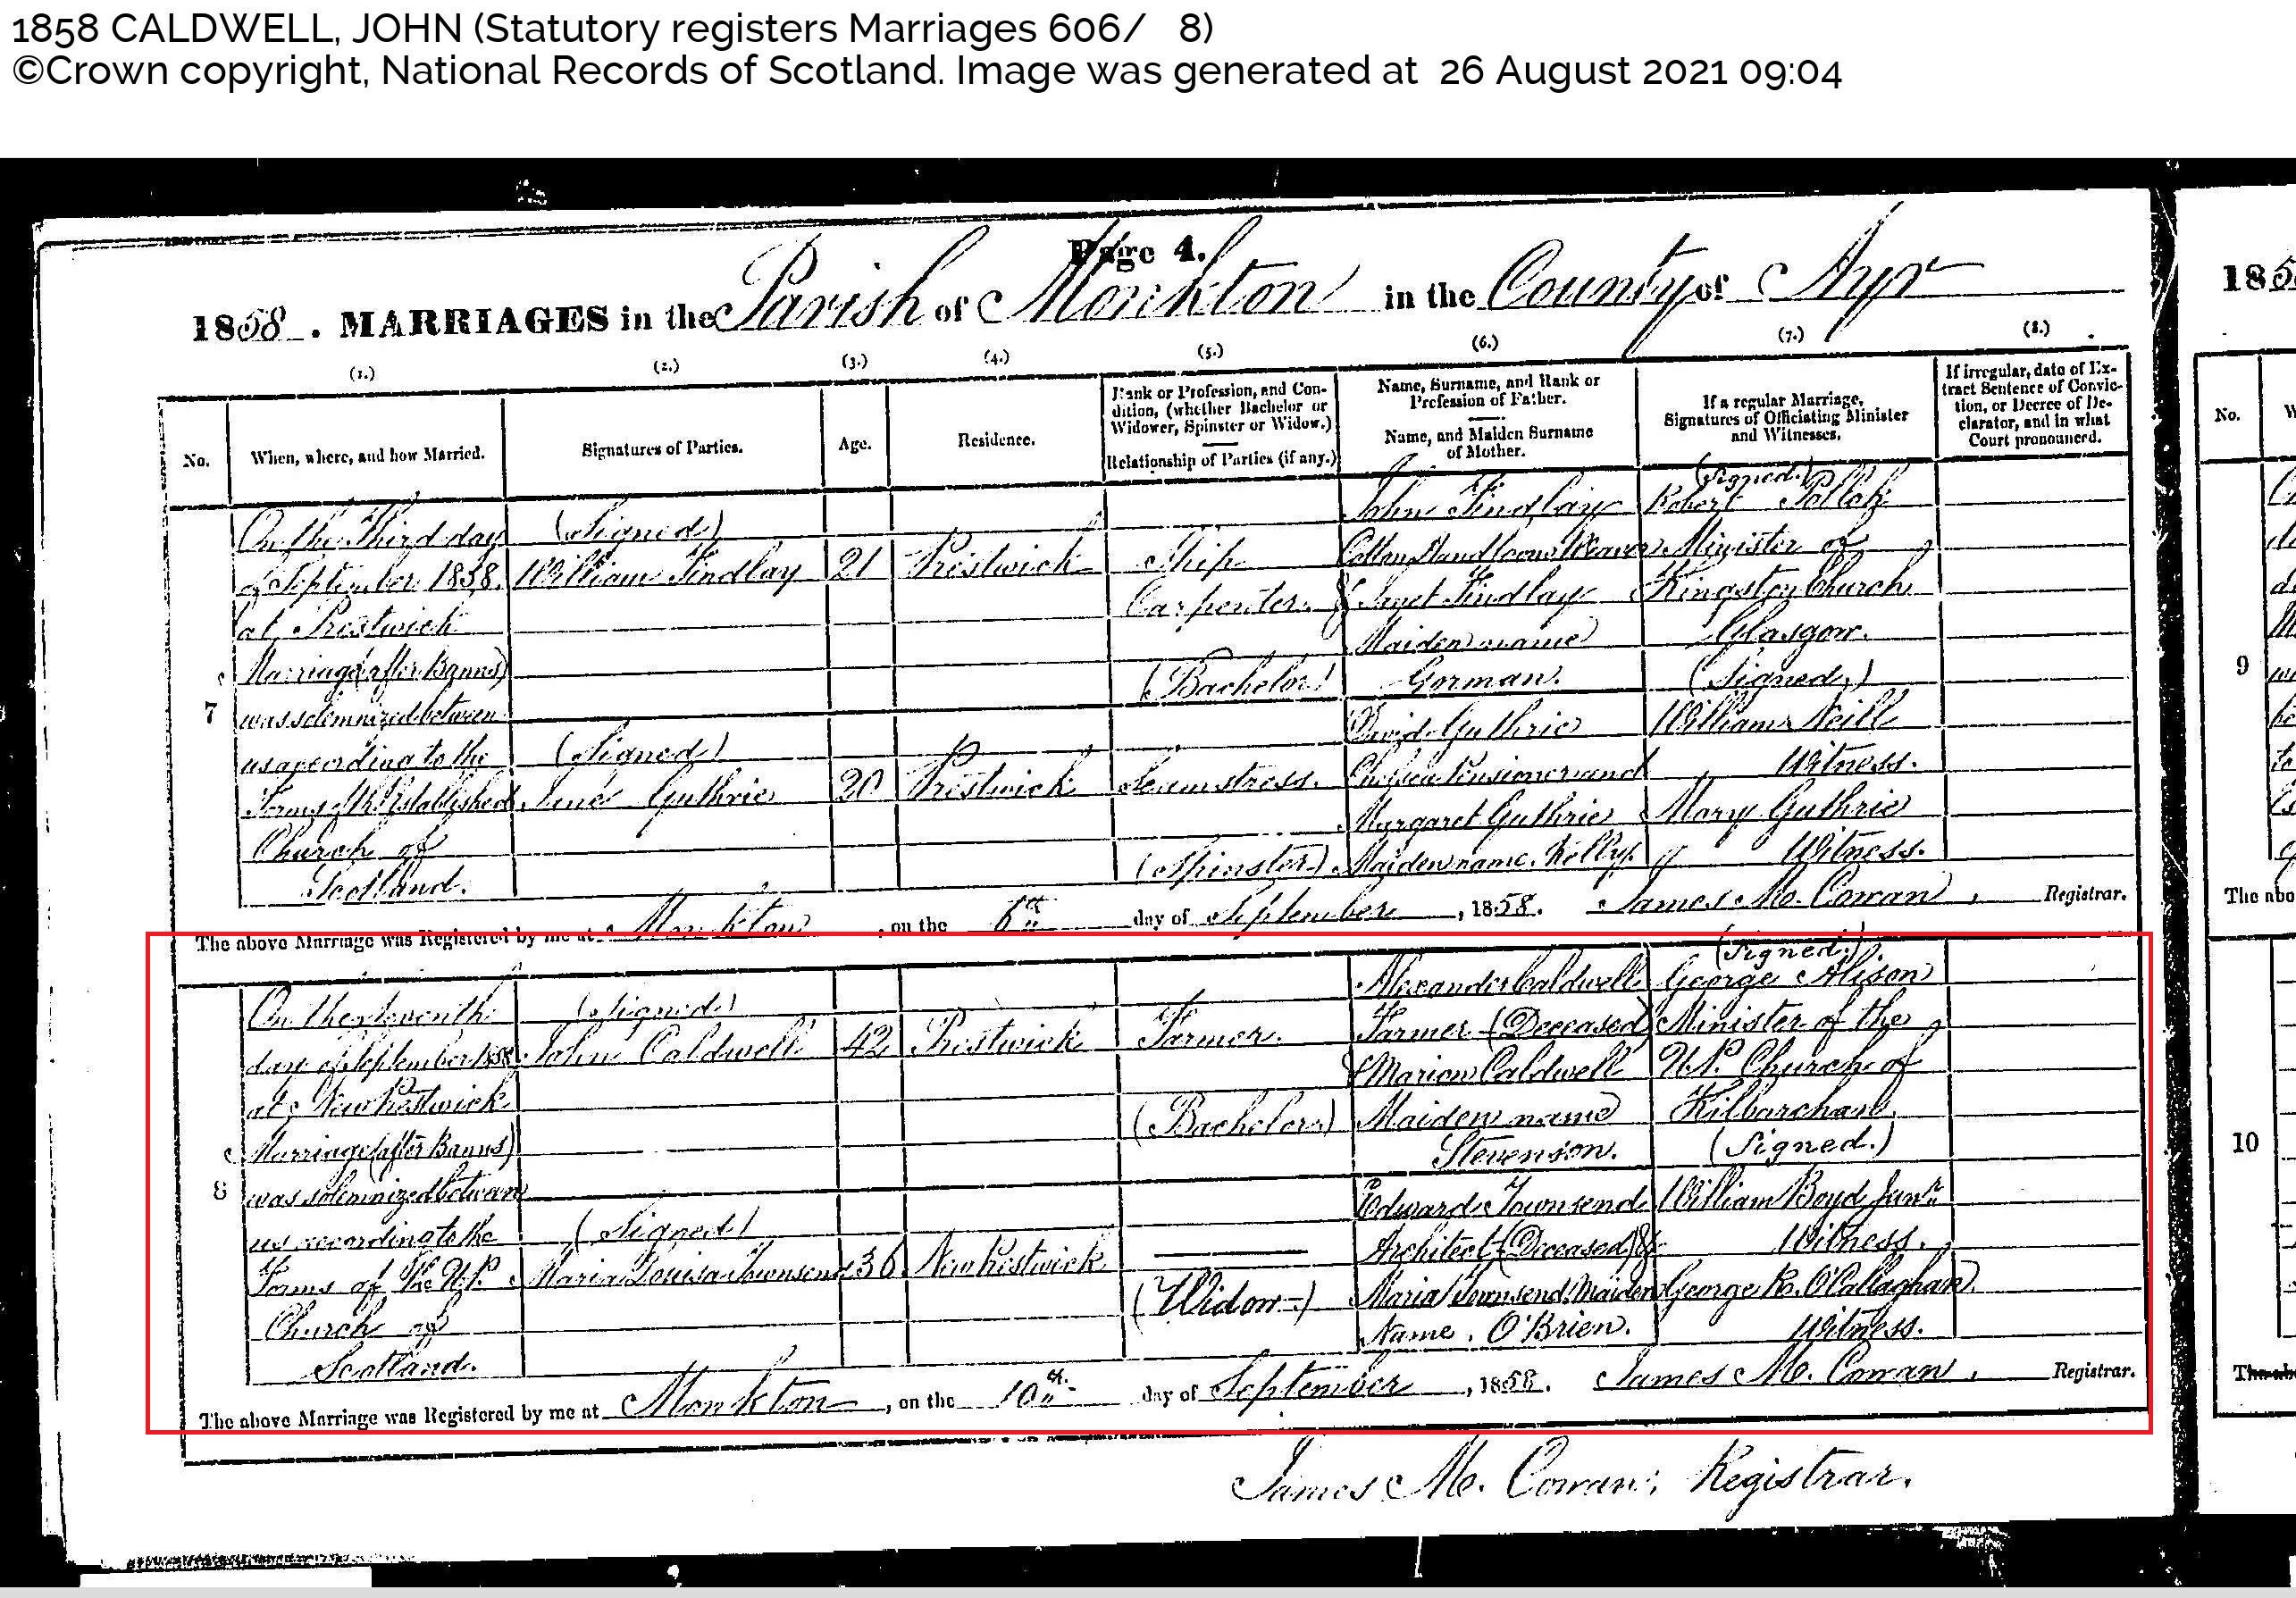 1858 CALDWELL, JOHN (Statutory registers Marriages 606/ 8)
©Crown copyright, National Records of Scotland. Image was generated at 26 August 2021 09:04
Page 4.
1858. MARRIAGES in the Parish of Monkton in the County of Ayr
185
(1.) (2.) (3.) (4.) (5.) (6.) (7.) (8.)
No.
When, where, and how Married.
Signatures of Parties.
Age.
Residence.
Rank or Profession, and Con-
dition, (whether Bachelor or
Widower, Spinster or Widow.)
Relationship of Parties (if any.)
Name, Surname, and Rank or
Profession of Father.
Name, and Maiden Surname
of Mother.
If a regular Marriage,
Signatures of Officiating Minister
and Witnesses.
If irregular, date of Ex-
tract Sentence of Convic-
tion, or Decree of De-
clarator, and in what
Court pronounced.
No.
7
On the Third day
of September 1858.
at Prestwick
Marriage (after Banns)
was solemnized between
us according to the
Forms of the Established
Church of
Scotland.
(Signed)
William Findlay
(Signed)
Jane Guthrie
21
20
Prestwick
Prestwick
Ship
Carpenter.
(Bachelor)
Seamstress.
(Spinster)
John Findlay
Cotton Handloom Weaver
& Janet Findlay
Maiden name
Gorman.
David Guthrie
Chelsea Pensioner and
Margaret Guthrie
Maiden name. Kelly.
(Signed.)
Robert Pollok
Minister of
Kingston Church
Glasgow.
(Signed.)
William Neill
Witness.
Mary Guthrie
Witness.
The above Marriage was Registered by me at Monkton, on the 6th day of September, 1858. James M. Cowan, Registrar.
8
On the Seventh
day of September 1858.
at New Prestwick
Marriage (after Banns)
was solemnized between
us according to the
Forms of the U.P.
Church of
Scotland.
(Signed)
John Caldwell
(Signed)
Maria Louisa Townsend
42
36
Prestwick
New Prestwick
Farmer.
(Bachelor)
(Widow)
Alexander Caldwell
Farmer (Deceased)
& Marion Caldwell
Maiden name
Stevenson.
Edward Townsend
Architect (Deceased) &
Maria Townsend, Maiden
Name. O'Brien.
(Signed.)
George Alison
Minister of the
U.P. Church of
Kilbarchan
(Signed.)
William Boyd Junr.
Witness.
George R. O'Callaghan
Witness.
The above Marriage was Registered by me at Monkton, on the 10th day of September, 1858. James M. Cowan, Registrar.
James M. Cowan, Registrar.
9
The abo
10
The abo